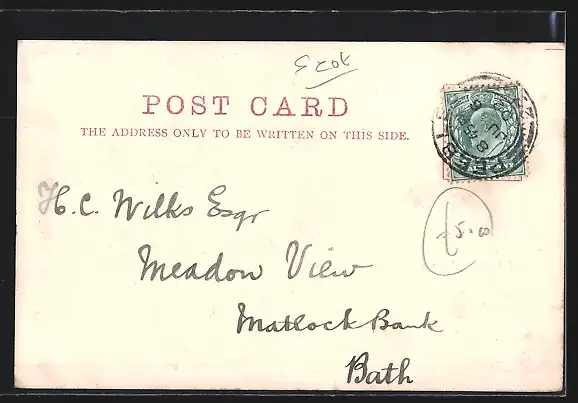 Scot
POST CARD
THE ADDRESS ONLY TO BE WRITTEN ON THIS SIDE.
H. C. Wilks Esqr
Meadow View
Matlock Bank
Bath